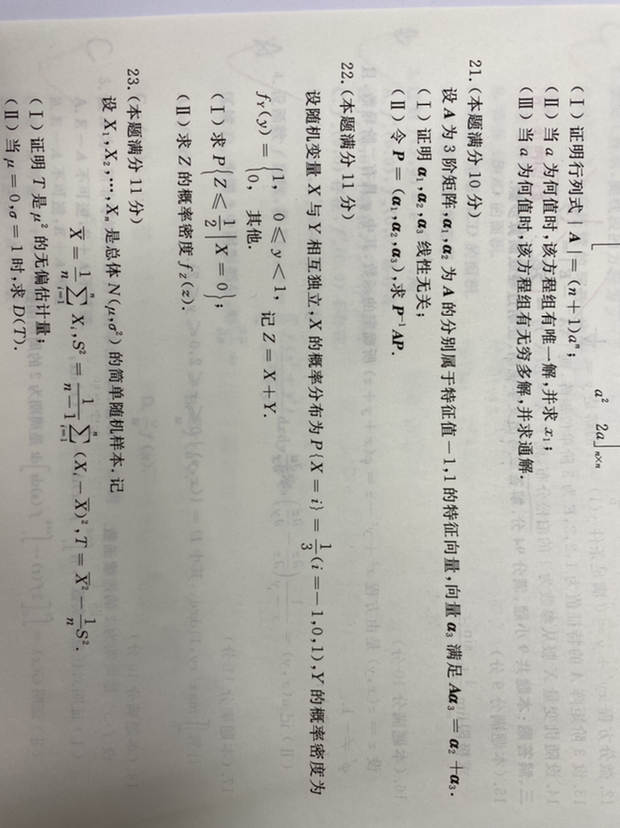 a² 2a n×n
(Ⅰ)证明行列式|A|=(n+1)aⁿ;
(Ⅱ)当a为何值时,该方程组有唯一解,并求x₁;
(Ⅲ)当a为何值时,该方程组有无穷多解,并求通解.
21.(本题满分10分)
设A为3阶矩阵,α₁,α₂为A的分别属于特征值-1,1的特征向量,向量α₃满足Aα₃=α₂+α₃.
(Ⅰ)证明α₁,α₂,α₃线性无关;
(Ⅱ)令P=(α₁,α₂,α₃),求P⁻¹AP.
22.(本题满分11分)
设随机变量X与Y相互独立,X的概率分布为P{X=i}=1/3(i=-1,0,1),Y的概率密度为
f_Y(y)={1, 0≤y<1, 0, 其他. 记Z=X+Y.
(Ⅰ)求P{Z≤1/2|X=0};
(Ⅱ)求Z的概率密度f_Z(z).
23.(本题满分11分)
设X₁,X₂,…,Xₙ是总体N(μ,σ²)的简单随机样本.记
X̄=1/n ∑ᵢ₌₁ⁿ Xᵢ,S²=1/(n-1) ∑ᵢ₌₁ⁿ (Xᵢ-X̄)²,T=X̄²-1/n S².
(Ⅰ)证明T是μ²的无偏估计量;
(Ⅱ)当μ=0,σ=1时,求D(T).